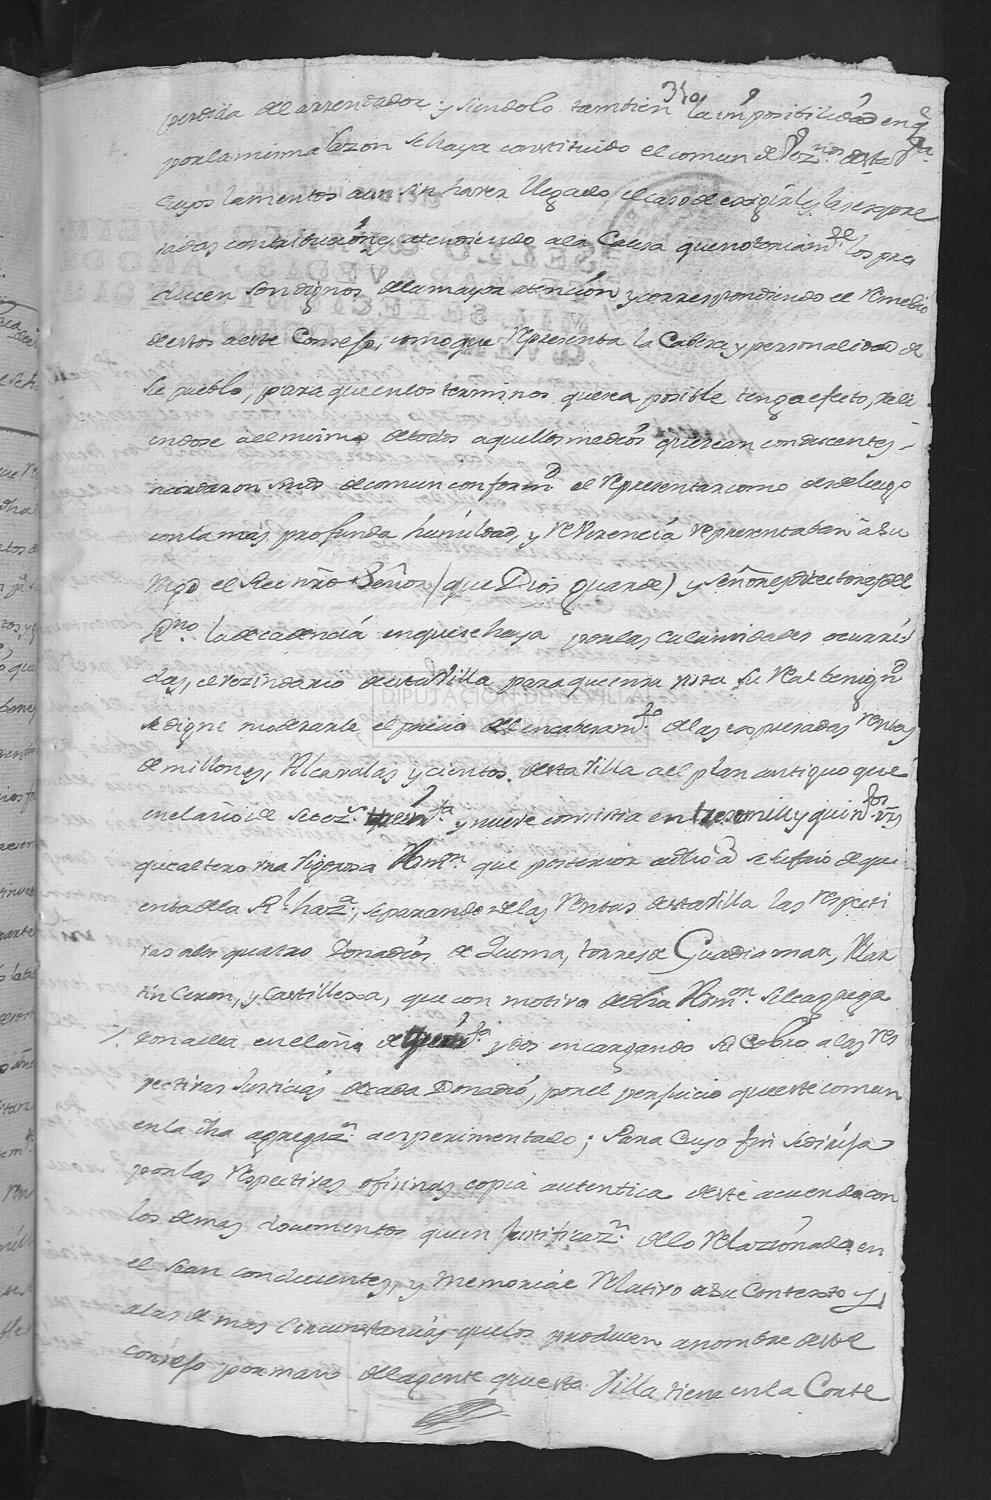 340
perdida del arrendador y siendolo tambien la imposibilidad en q.e
por la misma razon se haya constituido el comun de Vez.nos de esta V.a
cuyos lamentos aun sin haver llegado el caso de exigirles las expre
sadas contribuciónes atendiendo a la Causa que notoriam.te los pro
ducen son dignos de la mayor atención y correspondiendo el remedio
de estos a este Consejo, como que representa la Cabeza y personalidad de
se pueblo, para que en los terminos que sea posible tenga efecto, vali
endose del mismo de todos aquellos medios que sean conducentes
acordaron sus mds de comun conform.d el representar como desde luego
con la más profunda humildad, y reverencia representaban a Su
Mgd el Rei nro Señor (que Dios guarde) y señores directores del
Rno la decadencia en que se haya por las calamidades ocurri
das, el vezindario de esta Villa para que en su vista su Real benign.d
se digne moderarle el precio del encabezam.to de las expresadas rentas
de millones, Alcavalas y cientos de esta Villa a el plan antiguo que
en el año de setez.s treinta y nueve consistia en tres mill y quin.tos rs
que altero una rigorosa Admi.on que posterior a dho año se sufrio de qu
enta de la R.l haz.a, separando de las rentas de esta Villa las respecti
vas a los quatro Donadios de Quema, torres de Guadiamar, Mar
tin Ceron, y Castilleja, que con motivo de dha Adm.on se le agrega
ron a ella en el año de treinta y dos encargando su Cobro a las res
pectivas Justicias de cada Donadio, por el perjuicio que este comun
en la dha agregaz.n a experimentado; Para Cuyo fin se dirija
por las respectivas oficinas copia autentica de este acuerdo con
los demas documentos que en justificaz.n de lo relazionado en
el sean conducentes, y Memorial relativo a Su Contexto y
a las demas circunstancias que los producen a nombre de este
Consejo por mano del agente que esta Villa tiene en la Corte
DIPUTACIÓN DE SEVILLA